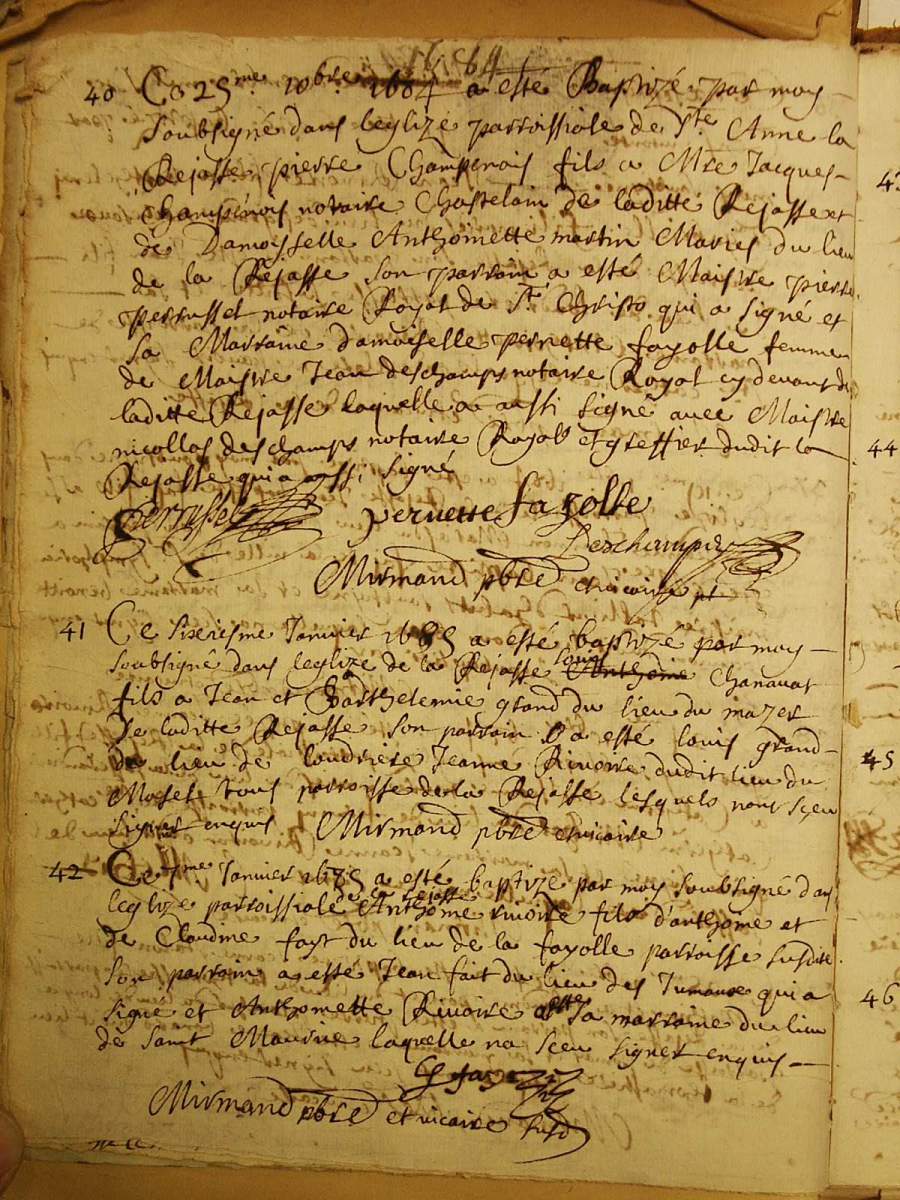 1684
40 Ce 25me 10bre 1684 a esté Baptizé par moy
soubsigné dans leglize parroissiale de Ste Anne la
Rejasse pierre Champenois fils a Mre Jacques
Champenois notaire Chastelain de laditte Rejasse et
de Damoiselle Anthoinette martin Maries du lieu
de la Rejasse son parrain a esté Maistre pierre
perrusset notaire Royal de St Christo qui a signé et
sa Marraine damoiselle pernette fayolle femme
de Maistre Jean deschamps notaire Royal cy devant de
laditte Rejasse laquelle a aussi signé avec Maistre
nicollas deschamps notaire Royal et greffier dudit la
Rejasse qui a aussi signé
perrusset pernette fayolle
Deschamps
Mirmand pbre et vicaire
41 Ce sixeriesme Janvier 1685 a esté baptizé par moy
soubsigné dans leglize de la Rejasse louis Anthoine Chanavat
fils a Jean et Barthelemie grand du lieu du mazet
de laditte Rejasse son parrain a esté louis grand
du lieu de Jeanne Rivoire dudit lieu du
Maset tous parroisse de la Rejasse lesquels nont sçeu
signer enquis Mirmand pbre et vicaire
42 Ce 7me Janvier 1685 a esté baptize par moy soubsigné dans
leglize parroissiale de la Rejasse Anthoine rivoire fils danthoine et
de Claudine fayt du lieu de la fayolle parroisse susdite
son parrain a esté Jean fait du lieu des qui a
signé et Anthoinette Rivoire a esté sa marraine du lieu
de saint Maurice laquelle na sceu signer enquis
Mirmand pbre et vicaire susd
43
44
45
46